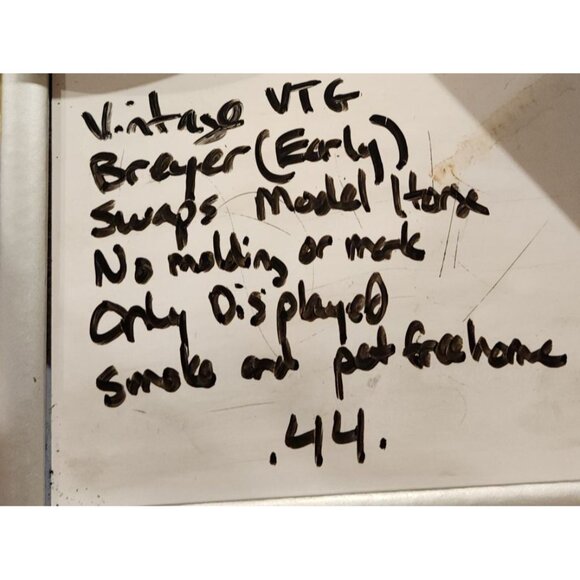 Vintage VTG
Breyer (Early)
Swaps Model Horse
No molding or mark
Only Displayed
Smoke and pet free home
.44.